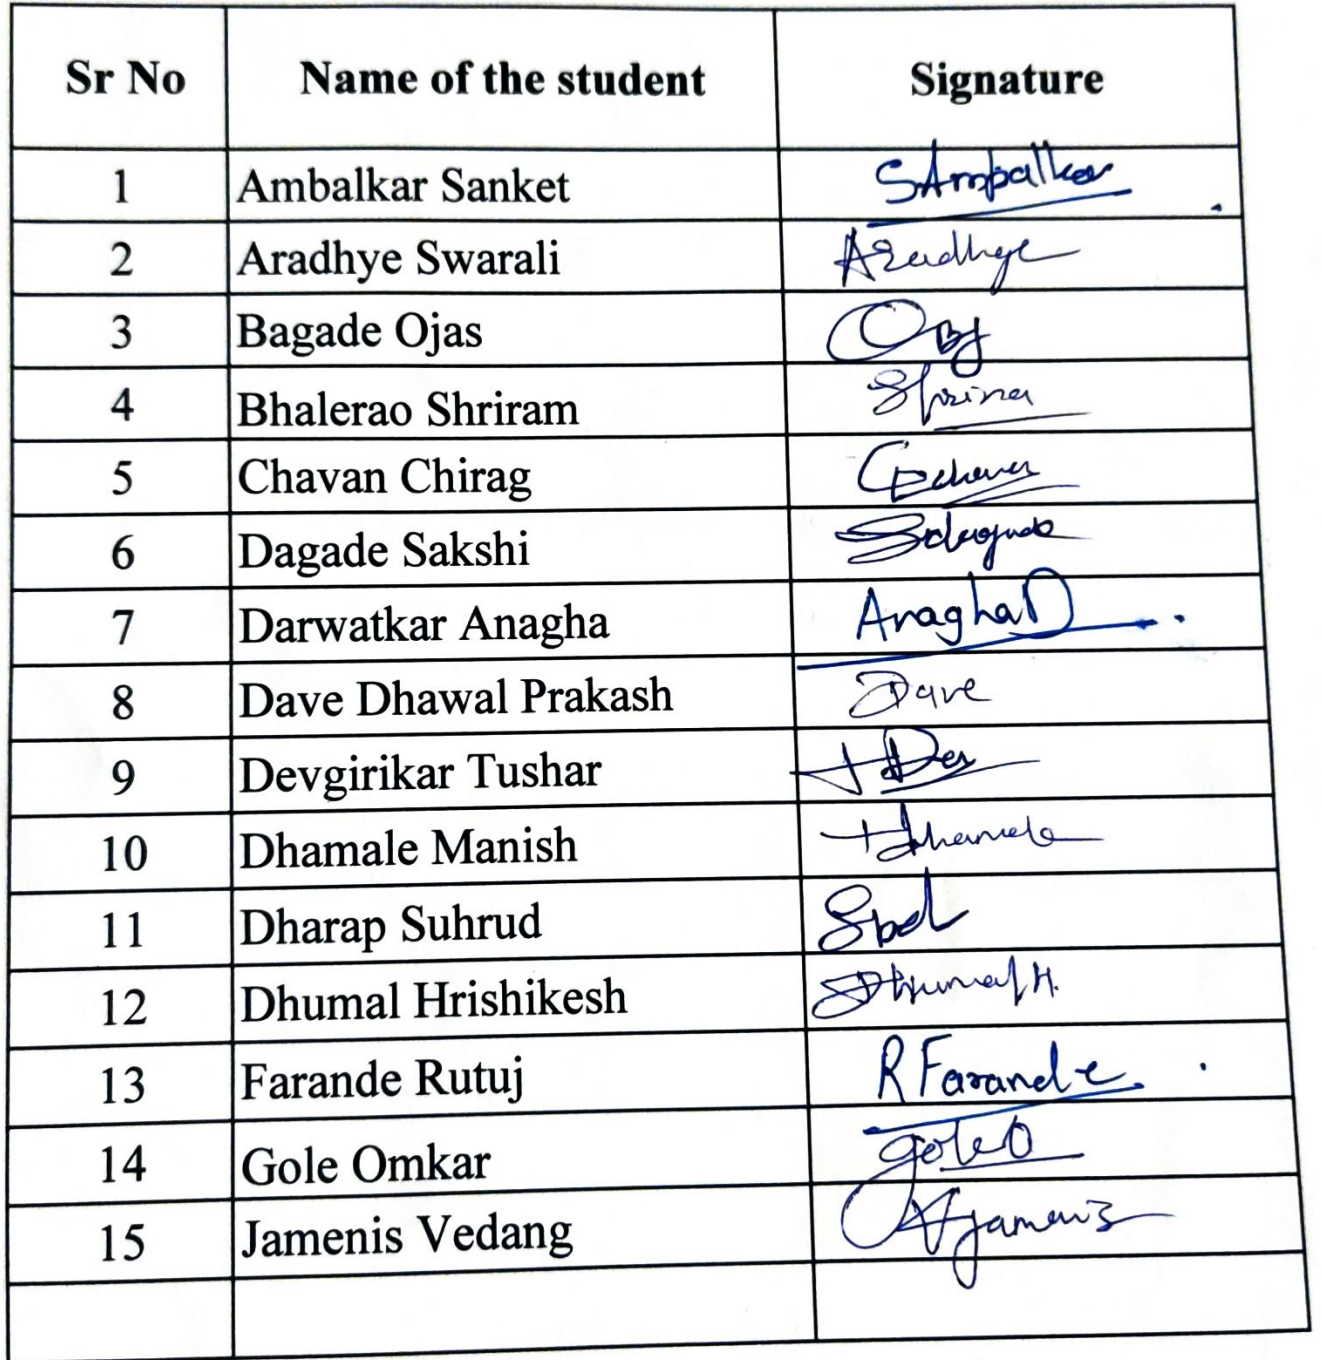 Sr No Name of the student Signature
1 Ambalkar Sanket SAmbalkar
2 Aradhye Swarali Aradhye
3 Bagade Ojas
4 Bhalerao Shriram
5 Chavan Chirag
6 Dagade Sakshi
7 Darwatkar Anagha AnaghaD
8 Dave Dhawal Prakash Dave
9 Devgirikar Tushar
10 Dhamale Manish
11 Dharap Suhrud
12 Dhumal Hrishikesh Dhumal H.
13 Farande Rutuj R Farande
14 Gole Omkar goleO
15 Jamenis Vedang